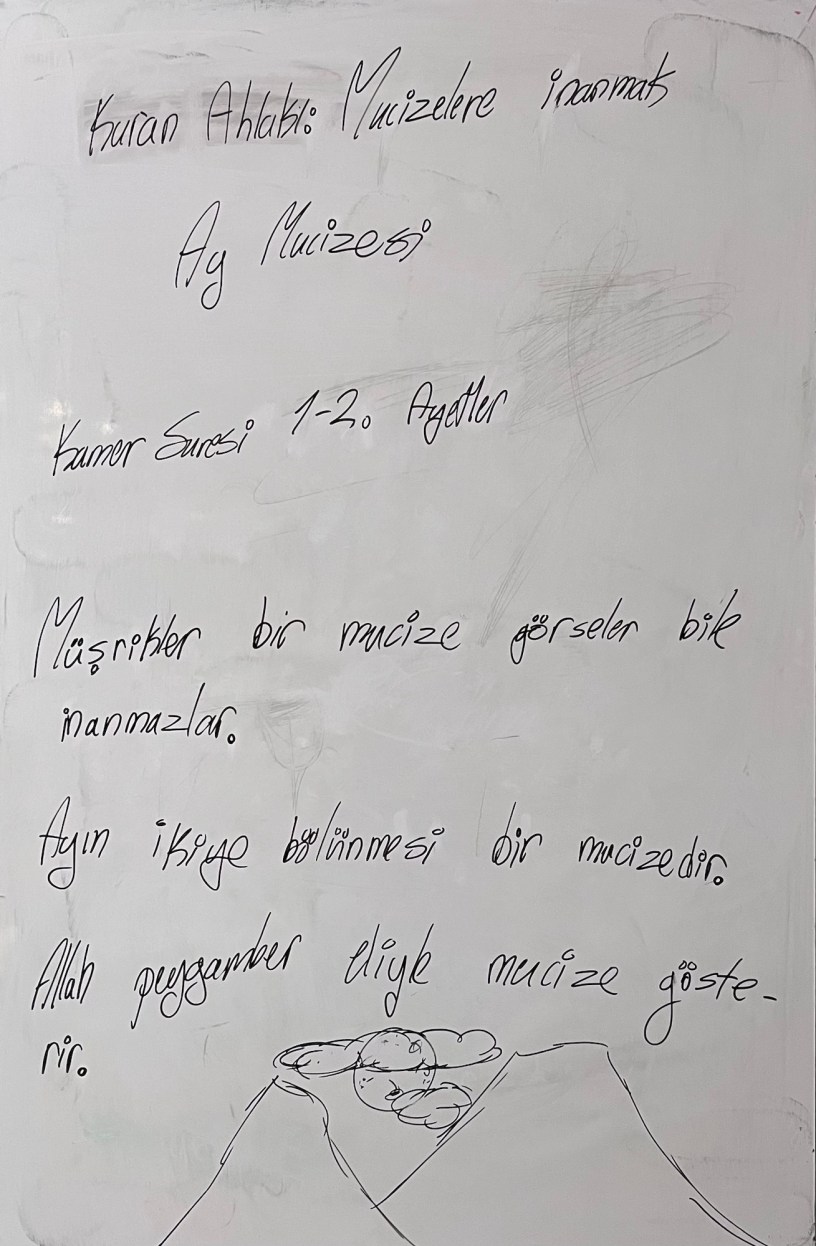 Kuran Ahlakı: Mucizelere inanmak
Ay Mucizesi
Kamer Suresi 1-2. Ayetler
Müşrikler bir mucize görseler bile
inanmazlar.
Ayın ikiye bölünmesi bir mucizedir.
Allah peygamber eliyle mucize göste-
rir.